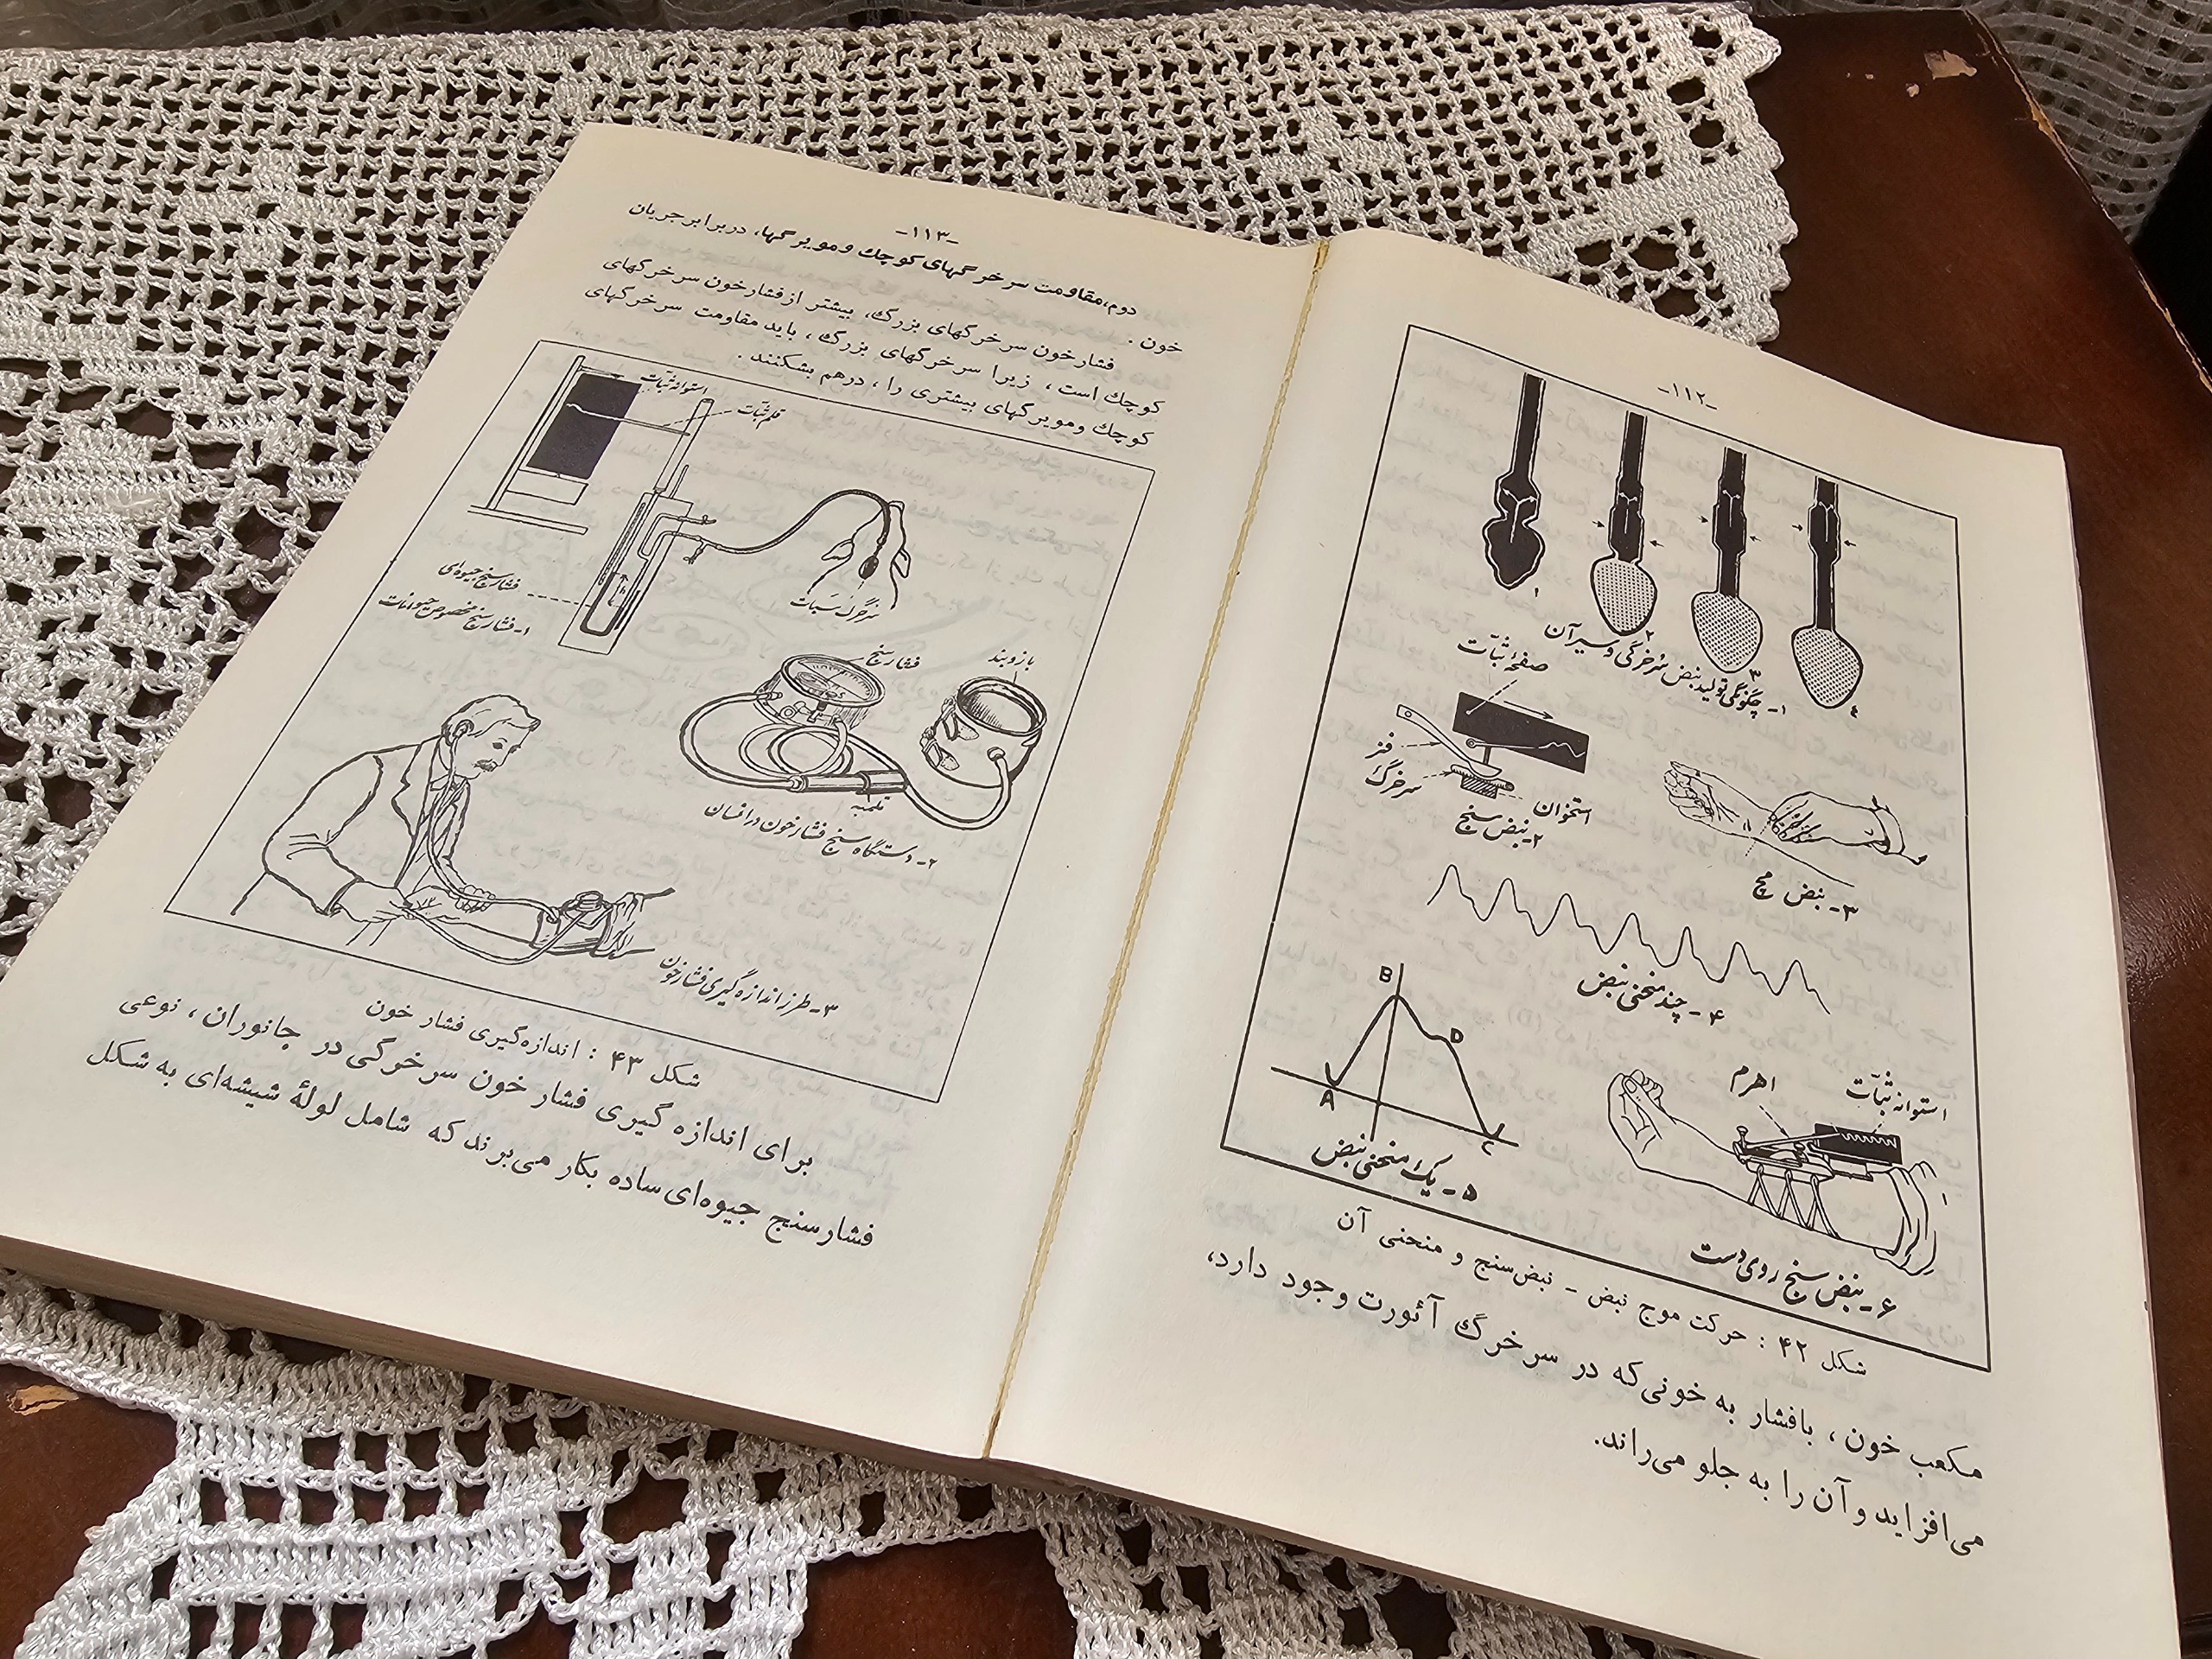 -۱۱۲-
۱ ۲ ۳ ٤
۱- چگونگی تولید نبض سرخرگی و سیر آن
صفحهٔ ثبّات
فنر
سرخرگ
استخوان
۲- نبض سنج
۳- نبض مچ
۴- چند منحنی نبض
B
D
A
C
۵- یک منحنی نبض
اهرم
استوانه ثبّات
۶- نبض سنج روی دست
شکل ۴۲ : حرکت موج نبض - نبض‌سنج و منحنی آن
مکعب خون ، بافشار به خونی‌که در سرخرگ آئورت وجود دارد،
می‌افزاید و آن را به جلو می‌راند.
-۱۱۳-
دوم،مقاومت سرخرگهای کوچك ومویرگها، دربرابر جریان
خون .
فشارخون سرخرگهای بزرگ، بیشتر ازفشارخون سرخرگهای
کوچك است ، زیرا سرخرگهای بزرگ ، باید مقاومت سرخرگهای
کوچك ومویرگهای بیشتری را ، درهم بشکنند .
استوانه ثبّات
قلم ثبّات
فشارسنج جیوه‌ای
سرخرگ سبات
۱- فشارسنج مخصوص حیوانات
فشارسنج
بازوبند
تلمبه
۲- دستگاه سنج فشارخون در انسان
۳- طرز اندازه گیری فشارخون
شکل ۴۳ : اندازه‌گیری فشار خون
برای اندازه گیری فشار خون سرخرگی در جانوران ، نوعی
فشارسنج جیوه‌ای ساده بکار می‌برند که شامل لولهٔ شیشه‌ای به شکل